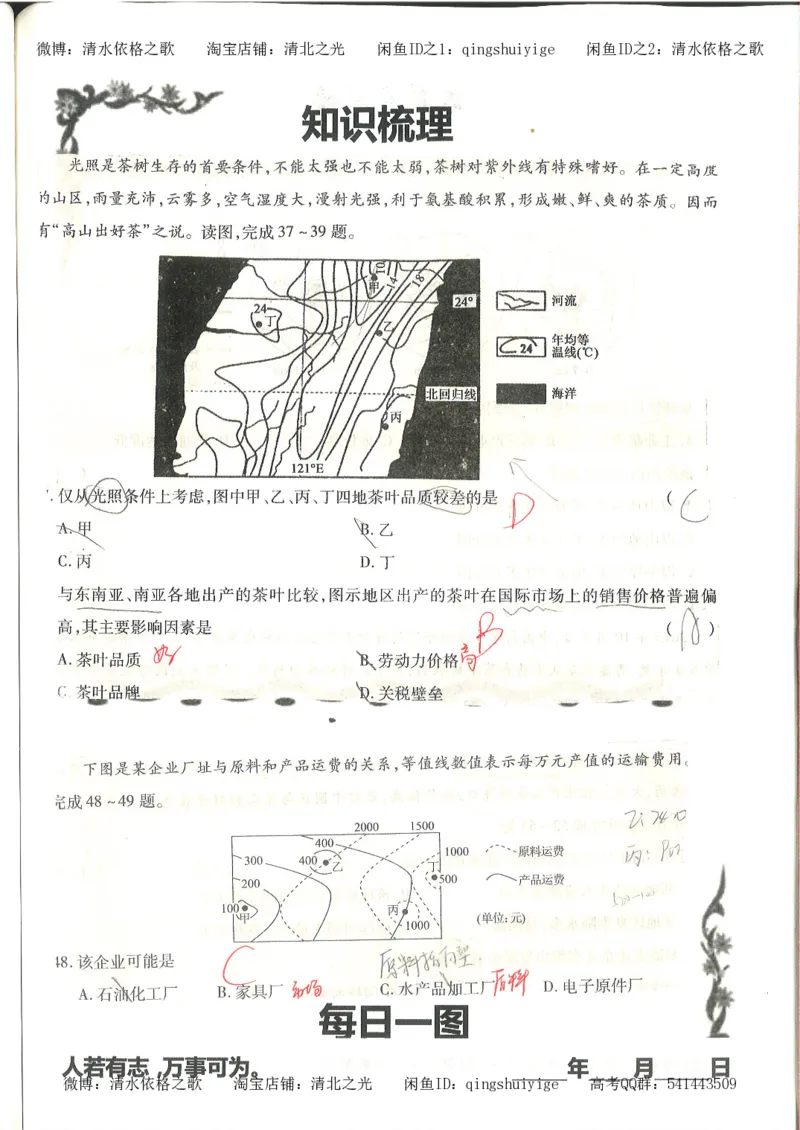 微博：清水依格之歌 淘宝店铺：清北之光 闲鱼ID之1：qingshuiyige 闲鱼ID之2：清水依格之歌
知识梳理
光照是茶树生存的首要条件,不能太强也不能太弱,茶树对紫外线有特殊嗜好。在一定高度
的山区,雨量充沛,云雾多,空气湿度大,漫射光强,利于氨基酸积累,形成嫩、鲜、爽的茶质。因而
有“高山出好茶”之说。读图,完成37～39题。
10
甲
14
18
24°
河流
24
丁
乙
年均等
24
温线(℃)
北回归线
海洋
丙
121°E
仅从光照条件上考虑,图中甲、乙、丙、丁四地茶叶品质较差的是 D ( C
A.甲 B.乙
C.丙 D.丁
与东南亚、南亚各地出产的茶叶比较,图示地区出产的茶叶在国际市场上的销售价格普遍偏
高,其主要影响因素是 B ( A )
A.茶叶品质 好 B.劳动力价格 高
C.茶叶品牌 D.关税壁垒
下图是某企业厂址与原料和产品运费的关系,等值线数值表示每万元产值的运输费用。
完成48～49题。
2000 1500
400
1000 原料运费
300 400 乙 丁
500 产品运费
200
100 甲 丙
1000
(单位:元)
48.该企业可能是 C
A.石油化工厂 B.家具厂 市场 C.水产品加工厂 原料 D.电子原件厂
每日一图
人若有志,万事可为。 年 月 日
微博：清水依格之歌 淘宝店铺：清北之光 闲鱼ID：qingshuiyige 高考QQ群：541443509